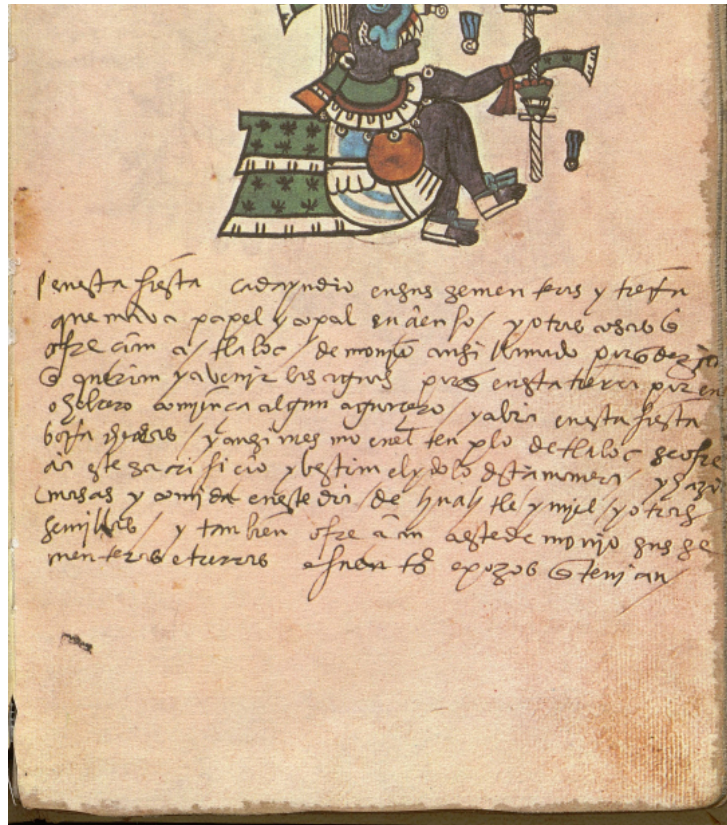 en esta fiesta cada yndio en sus sementeras y
quemava papel y copal en ençenso / y otras cosas q̃
ofreçiã a / tlaloc / demonjo ansi llamado
q̃ querian ya venir las aguas pues en esta tierra por en
o hebrero comiença algun aguaçero / y abia en esta fiesta
/ y ansi mesmo en el templo de tlaloc se ofre
este sacrifiçio y bestian el ydolo desta manera / y hazi
masas y comida en este dia / de huahtle y mjel / y otras
semillas / y tambien ofreçian a este demonjo sus se
menteras e tierras e fuentes e pozos q̃ tenjan /